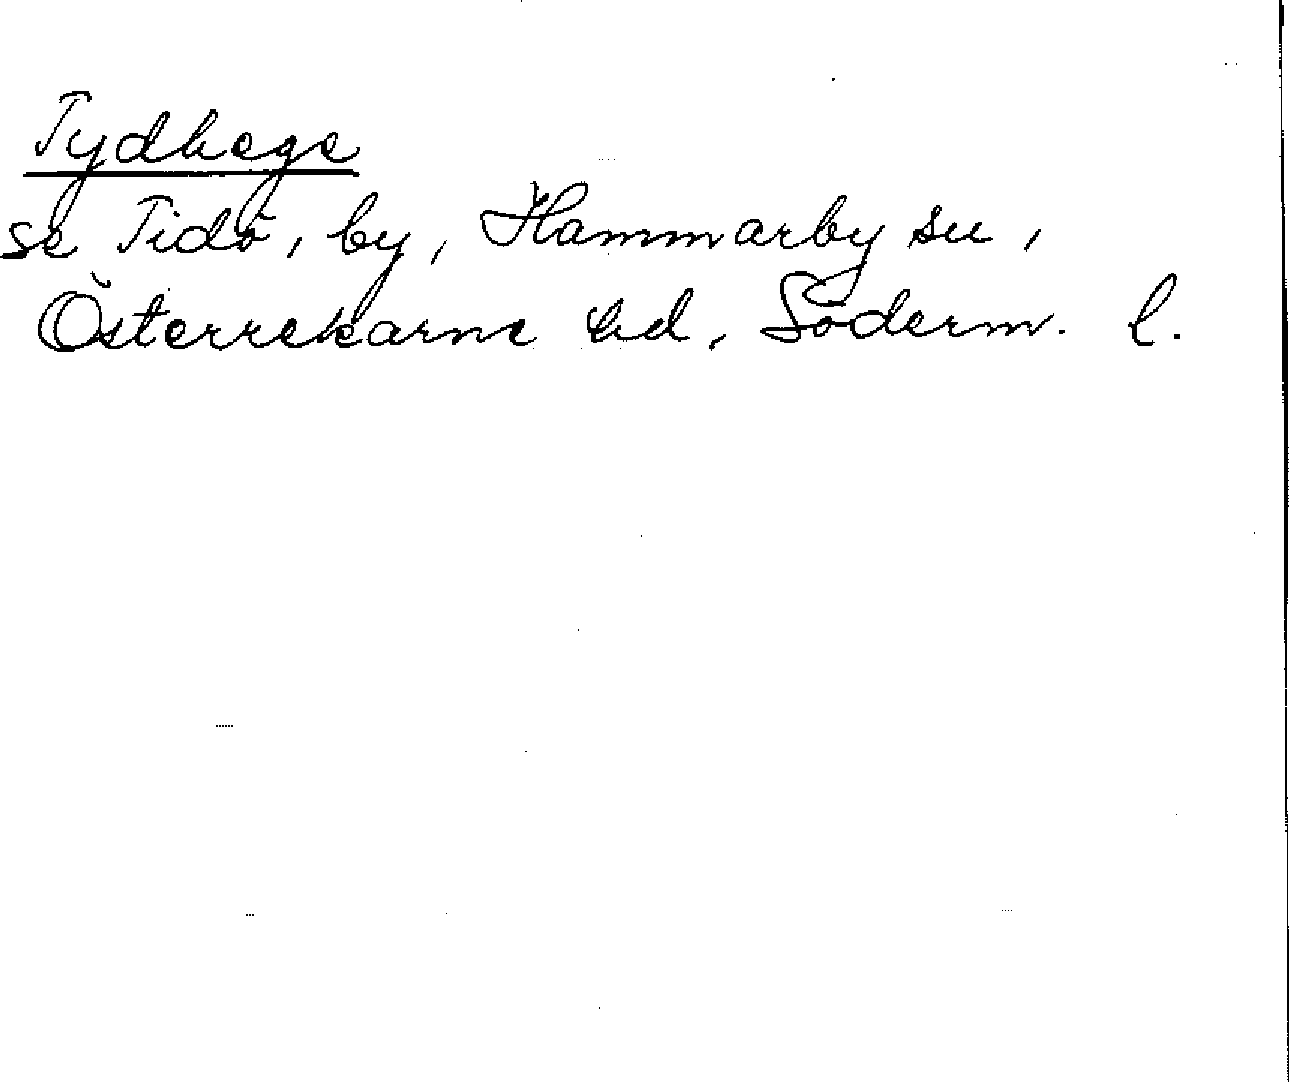 Tydhege
se Tidö, by, Hammarby sn,
Österrekarne hd, Söderm. l.